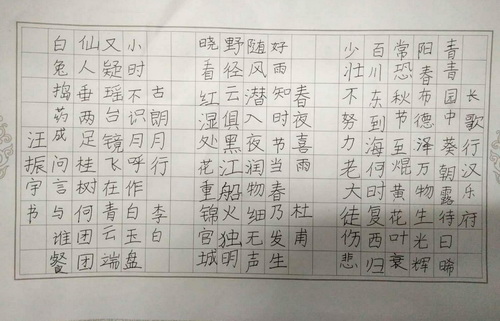 长歌行汉乐府
青青园中葵朝露待日晞
阳春布德泽万物生光辉
常恐秋节至焜黄花叶衰
百川东到海何时复西归
少壮不努力老大徒伤悲
春夜喜雨 杜甫
好雨知时节当春乃发生
随风潜入夜润物细无声
野经云俱黑江船火独明
晓看红湿处花重锦官城
古朗月行 李白
小时不识月呼作白玉盘
又疑瑶台镜飞在青云端
仙人垂两足桂树何团团
白兔捣药成问言与谁餐
汪振宇书